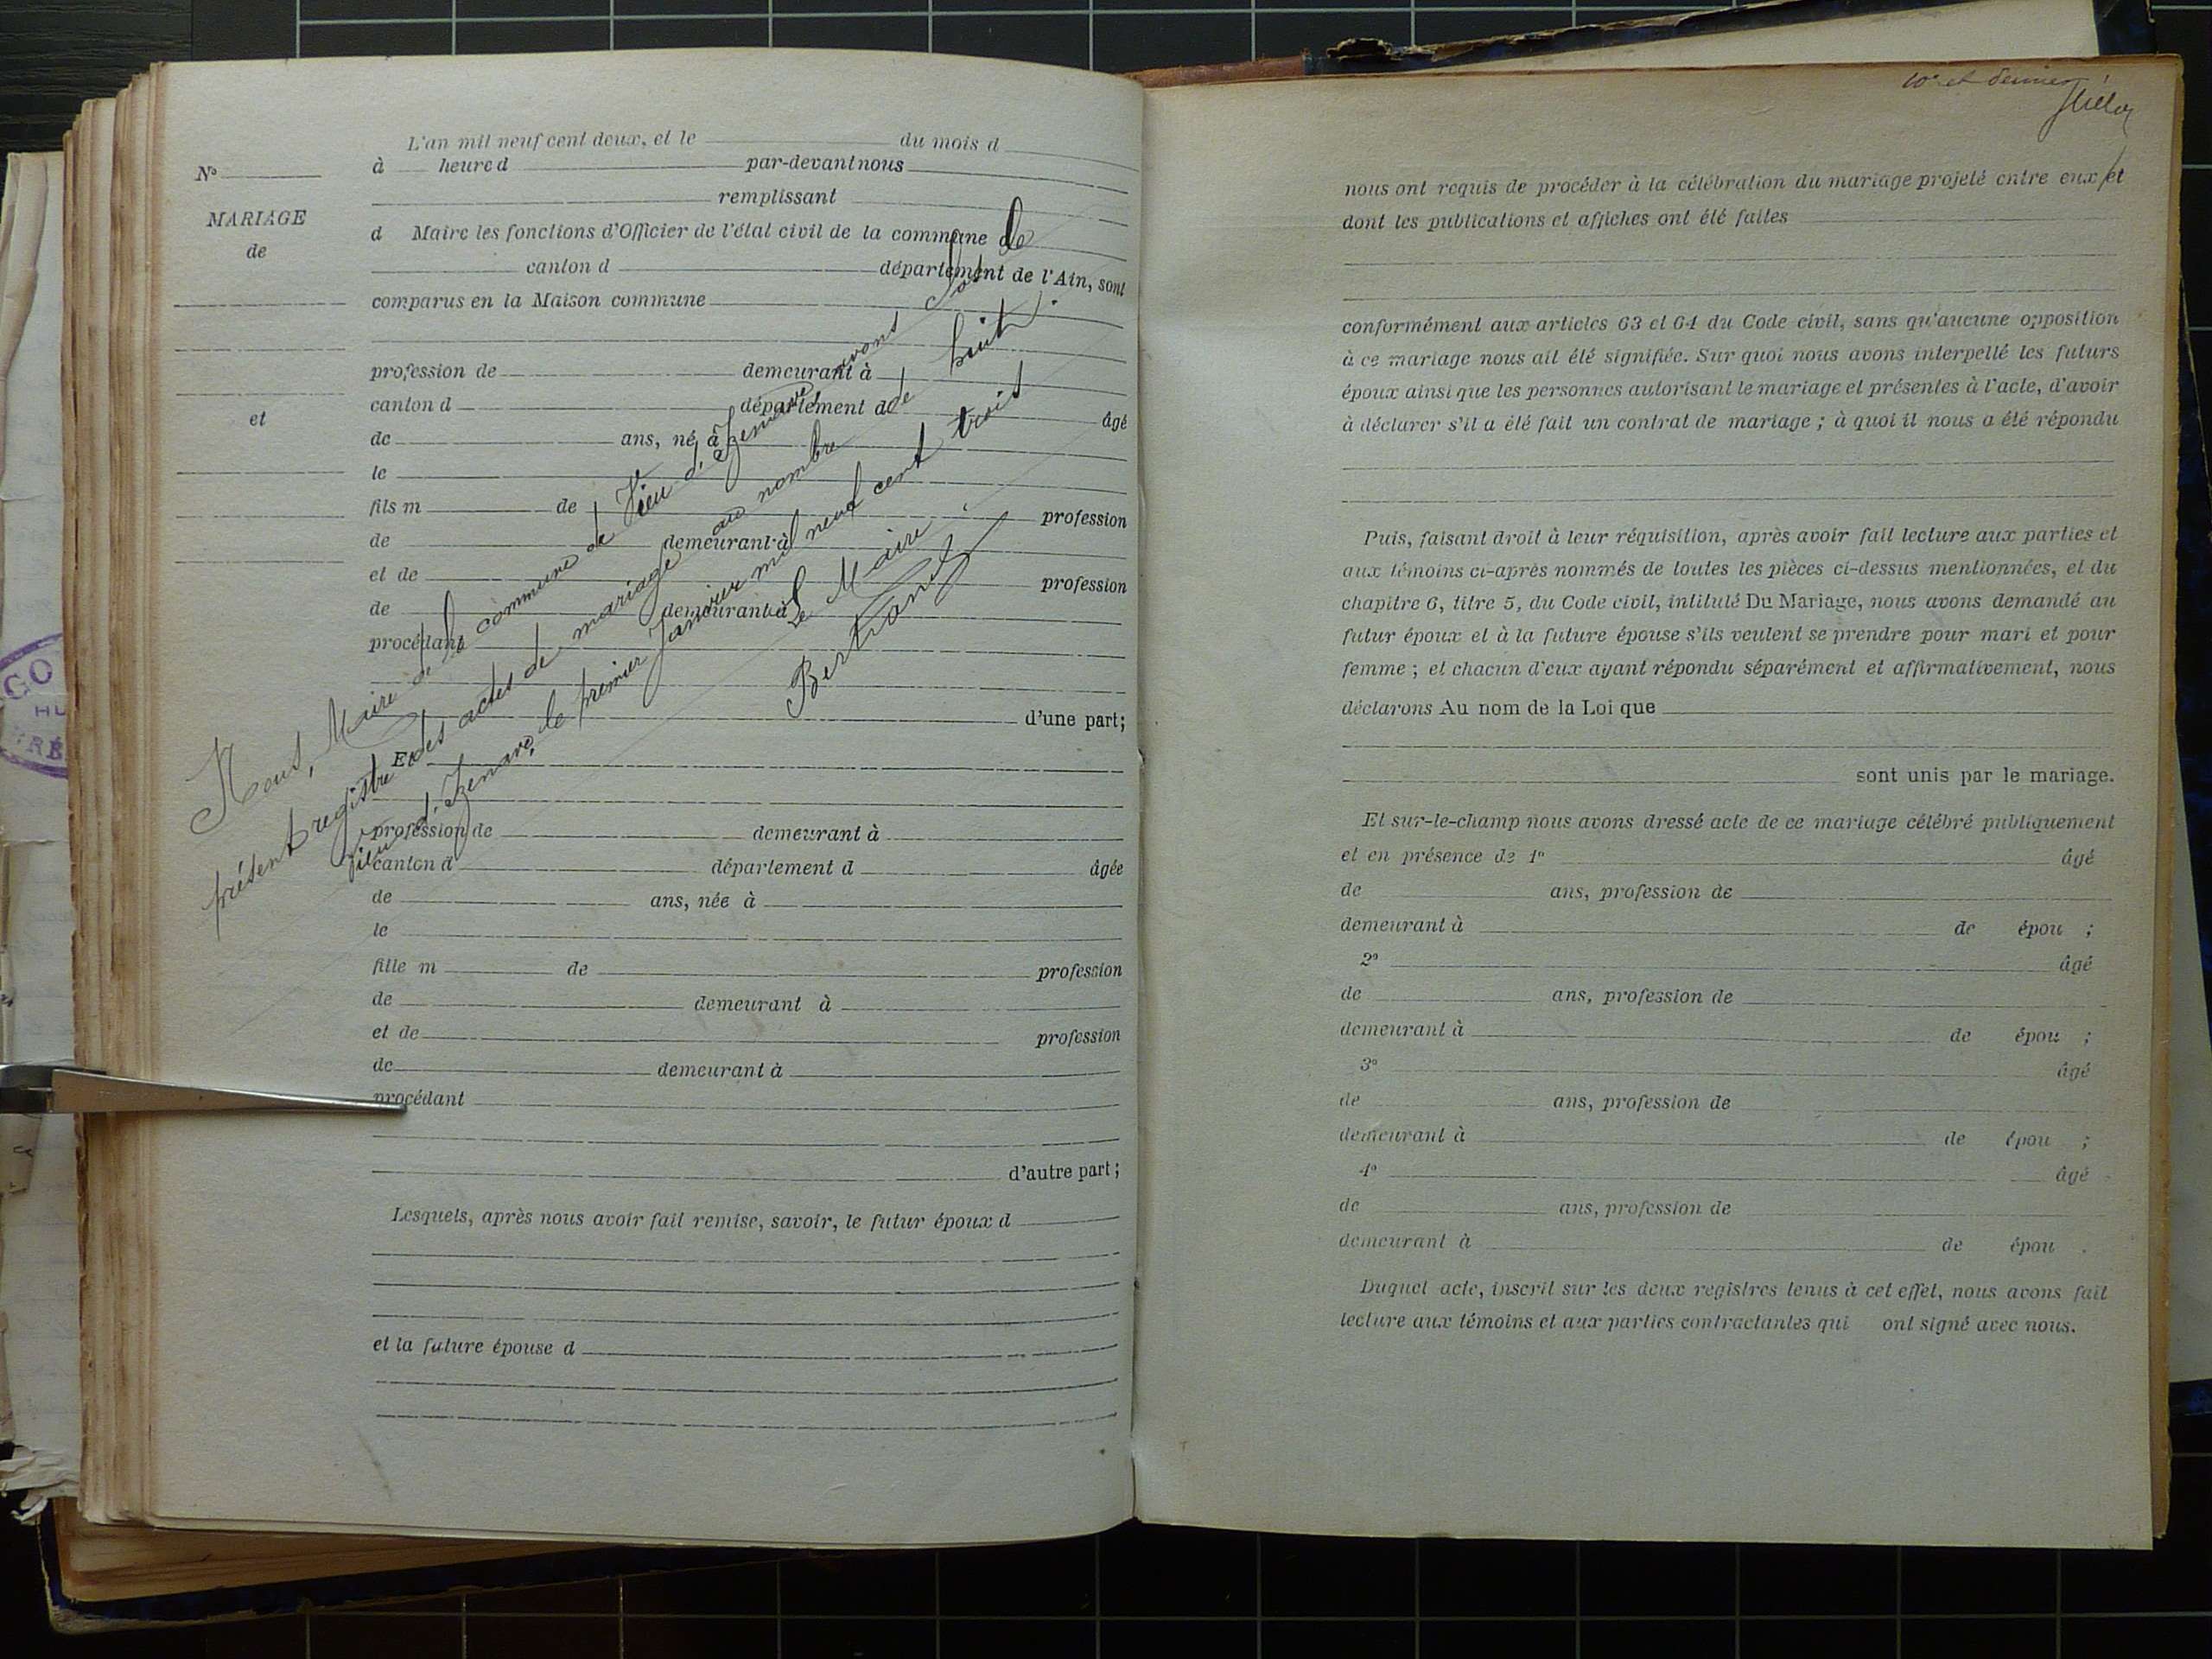 L'an mil neuf cent deux, et le du mois d
N° à heure d par-devant nous
remplissant
MARIAGE
de
d Maire les fonctions d'Officier de l'état civil de la commune de
canton d département de l'Ain, sont
comparus en la Maison commune
profession de demeurant à
canton d département d âgé
et
de ans, né à
le
fils m de profession
de demeurant à
et de profession
de demeurant à
procédant
d'une part;
Et
profession de demeurant à
canton d département d âgée
de ans, née à
le
fille m de profession
de demeurant à
et de profession
de demeurant à
procédant
d'autre part;
Lesquels, après nous avoir fait remise, savoir, le futur époux d
et la future épouse d
Nous, Maire de la commune de Vieu d'Izenave, avons clos le
présent registre des actes de mariage au nombre de huit.
Vieu d'Izenave, le premier Janvier mil neuf cent trois
Le Maire,
Bertrand
10e et dernier
nous ont requis de procéder à la célébration du mariage projeté entre eux et
dont les publications et affiches ont été faites
conformément aux articles 63 et 64 du Code civil, sans qu'aucune opposition
à ce mariage nous ait été signifiée. Sur quoi nous avons interpellé les futurs
époux ainsi que les personnes autorisant le mariage et présentes à l'acte, d'avoir
à déclarer s'il a été fait un contrat de mariage ; à quoi il nous a été répondu
Puis, faisant droit à leur réquisition, après avoir fait lecture aux parties et
aux témoins ci-après nommés de toutes les pièces ci-dessus mentionnées, et du
chapitre 6, titre 5, du Code civil, intitulé Du Mariage, nous avons demandé au
futur époux et à la future épouse s'ils veulent se prendre pour mari et pour
femme ; et chacun d'eux ayant répondu séparément et affirmativement, nous
déclarons Au nom de la Loi que
sont unis par le mariage.
Et sur-le-champ nous avons dressé acte de ce mariage célébré publiquement
et en présence de 1° âgé
de ans, profession de
demeurant à de épou ;
2° âgé
de ans, profession de
demeurant à de épou ;
3° âgé
de ans, profession de
demeurant à de épou ;
4° âgé
de ans, profession de
demeurant à de épou .
Duquel acte, inscrit sur les deux registres tenus à cet effet, nous avons fait
lecture aux témoins et aux parties contractantes qui ont signé avec nous.